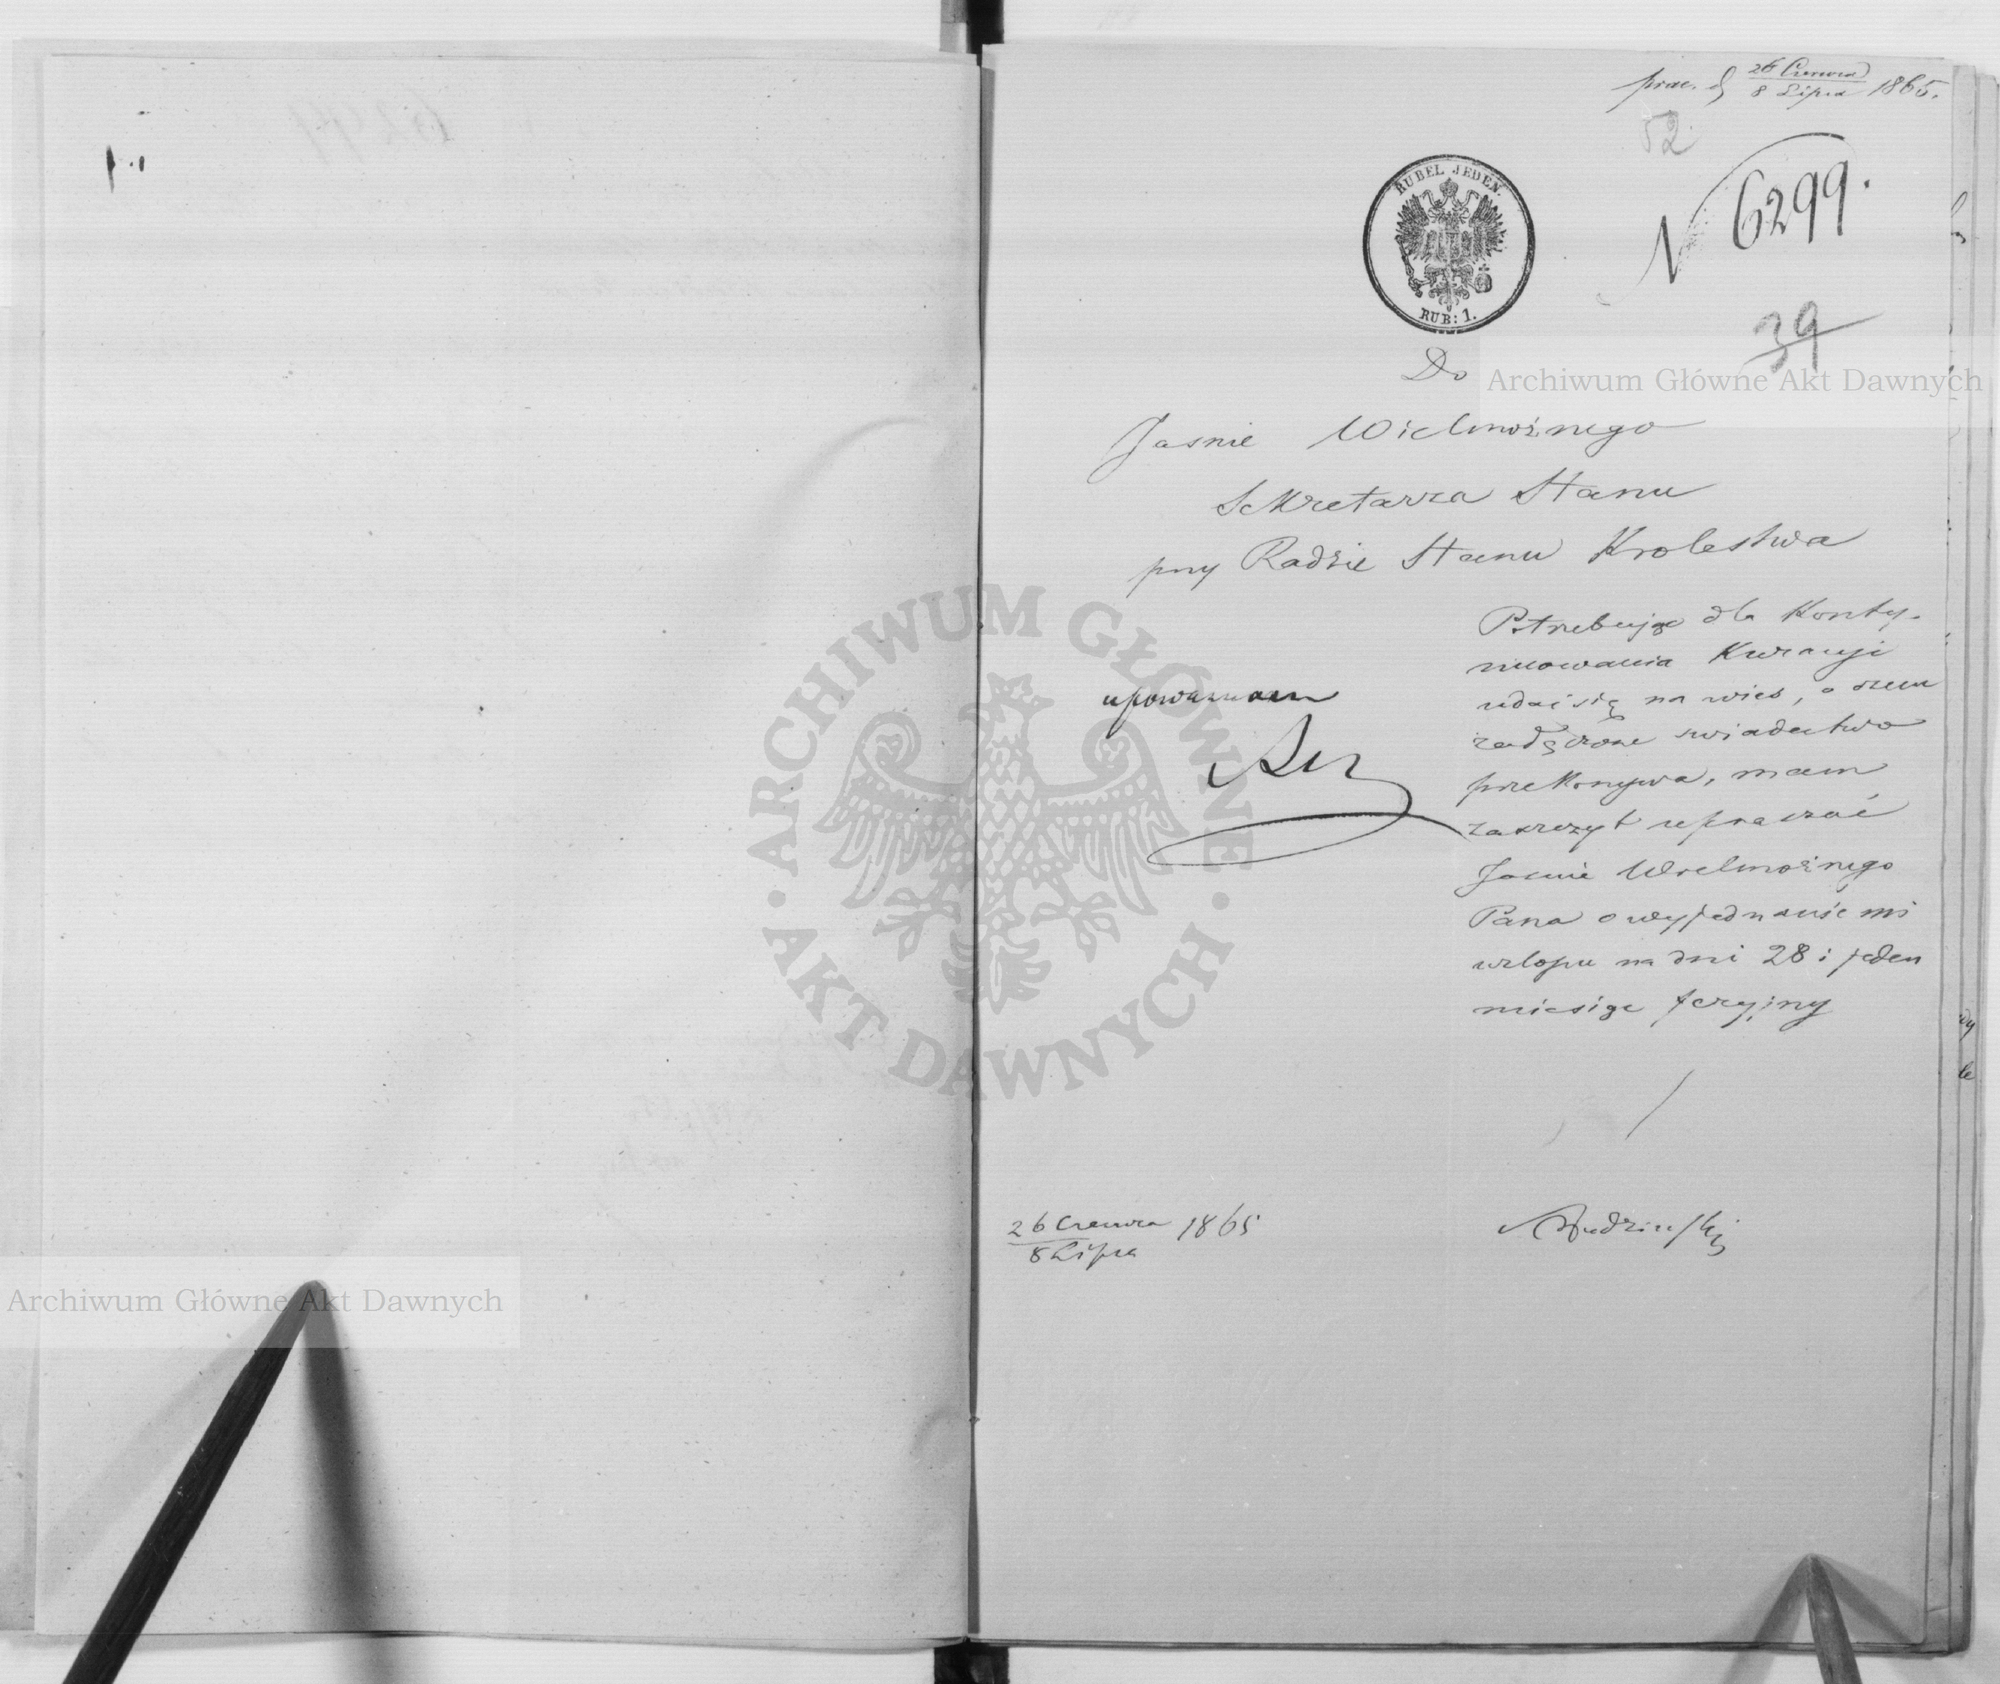 26 Czerwca
8 Lipca 1865.
52
RUBEL JEDEN.
RUB: 1.
N 6299.
39
Do
Jasnie Wielmożnego
Sekretarza Stanu
przy Radzie Stanu Krolestwa
Potrzebując dla Konty-
nuowania Kuracyi
udać się na wieś, o czem
załączone swiadectwo
przekonywa, mam
zaszczyt upraszać
Jasnie Wielmożnego
Pana o wyjednanie mi
urlopu na dni 28 i jeden
miesiąc feryjny
upoważniam
26 Czerwca 1865
8 Lipca
Archiwum Główne Akt Dawnych
Archiwum Główne Akt Dawnych
ARCHIWUM GŁÓWNE
AKT DAWNYCH